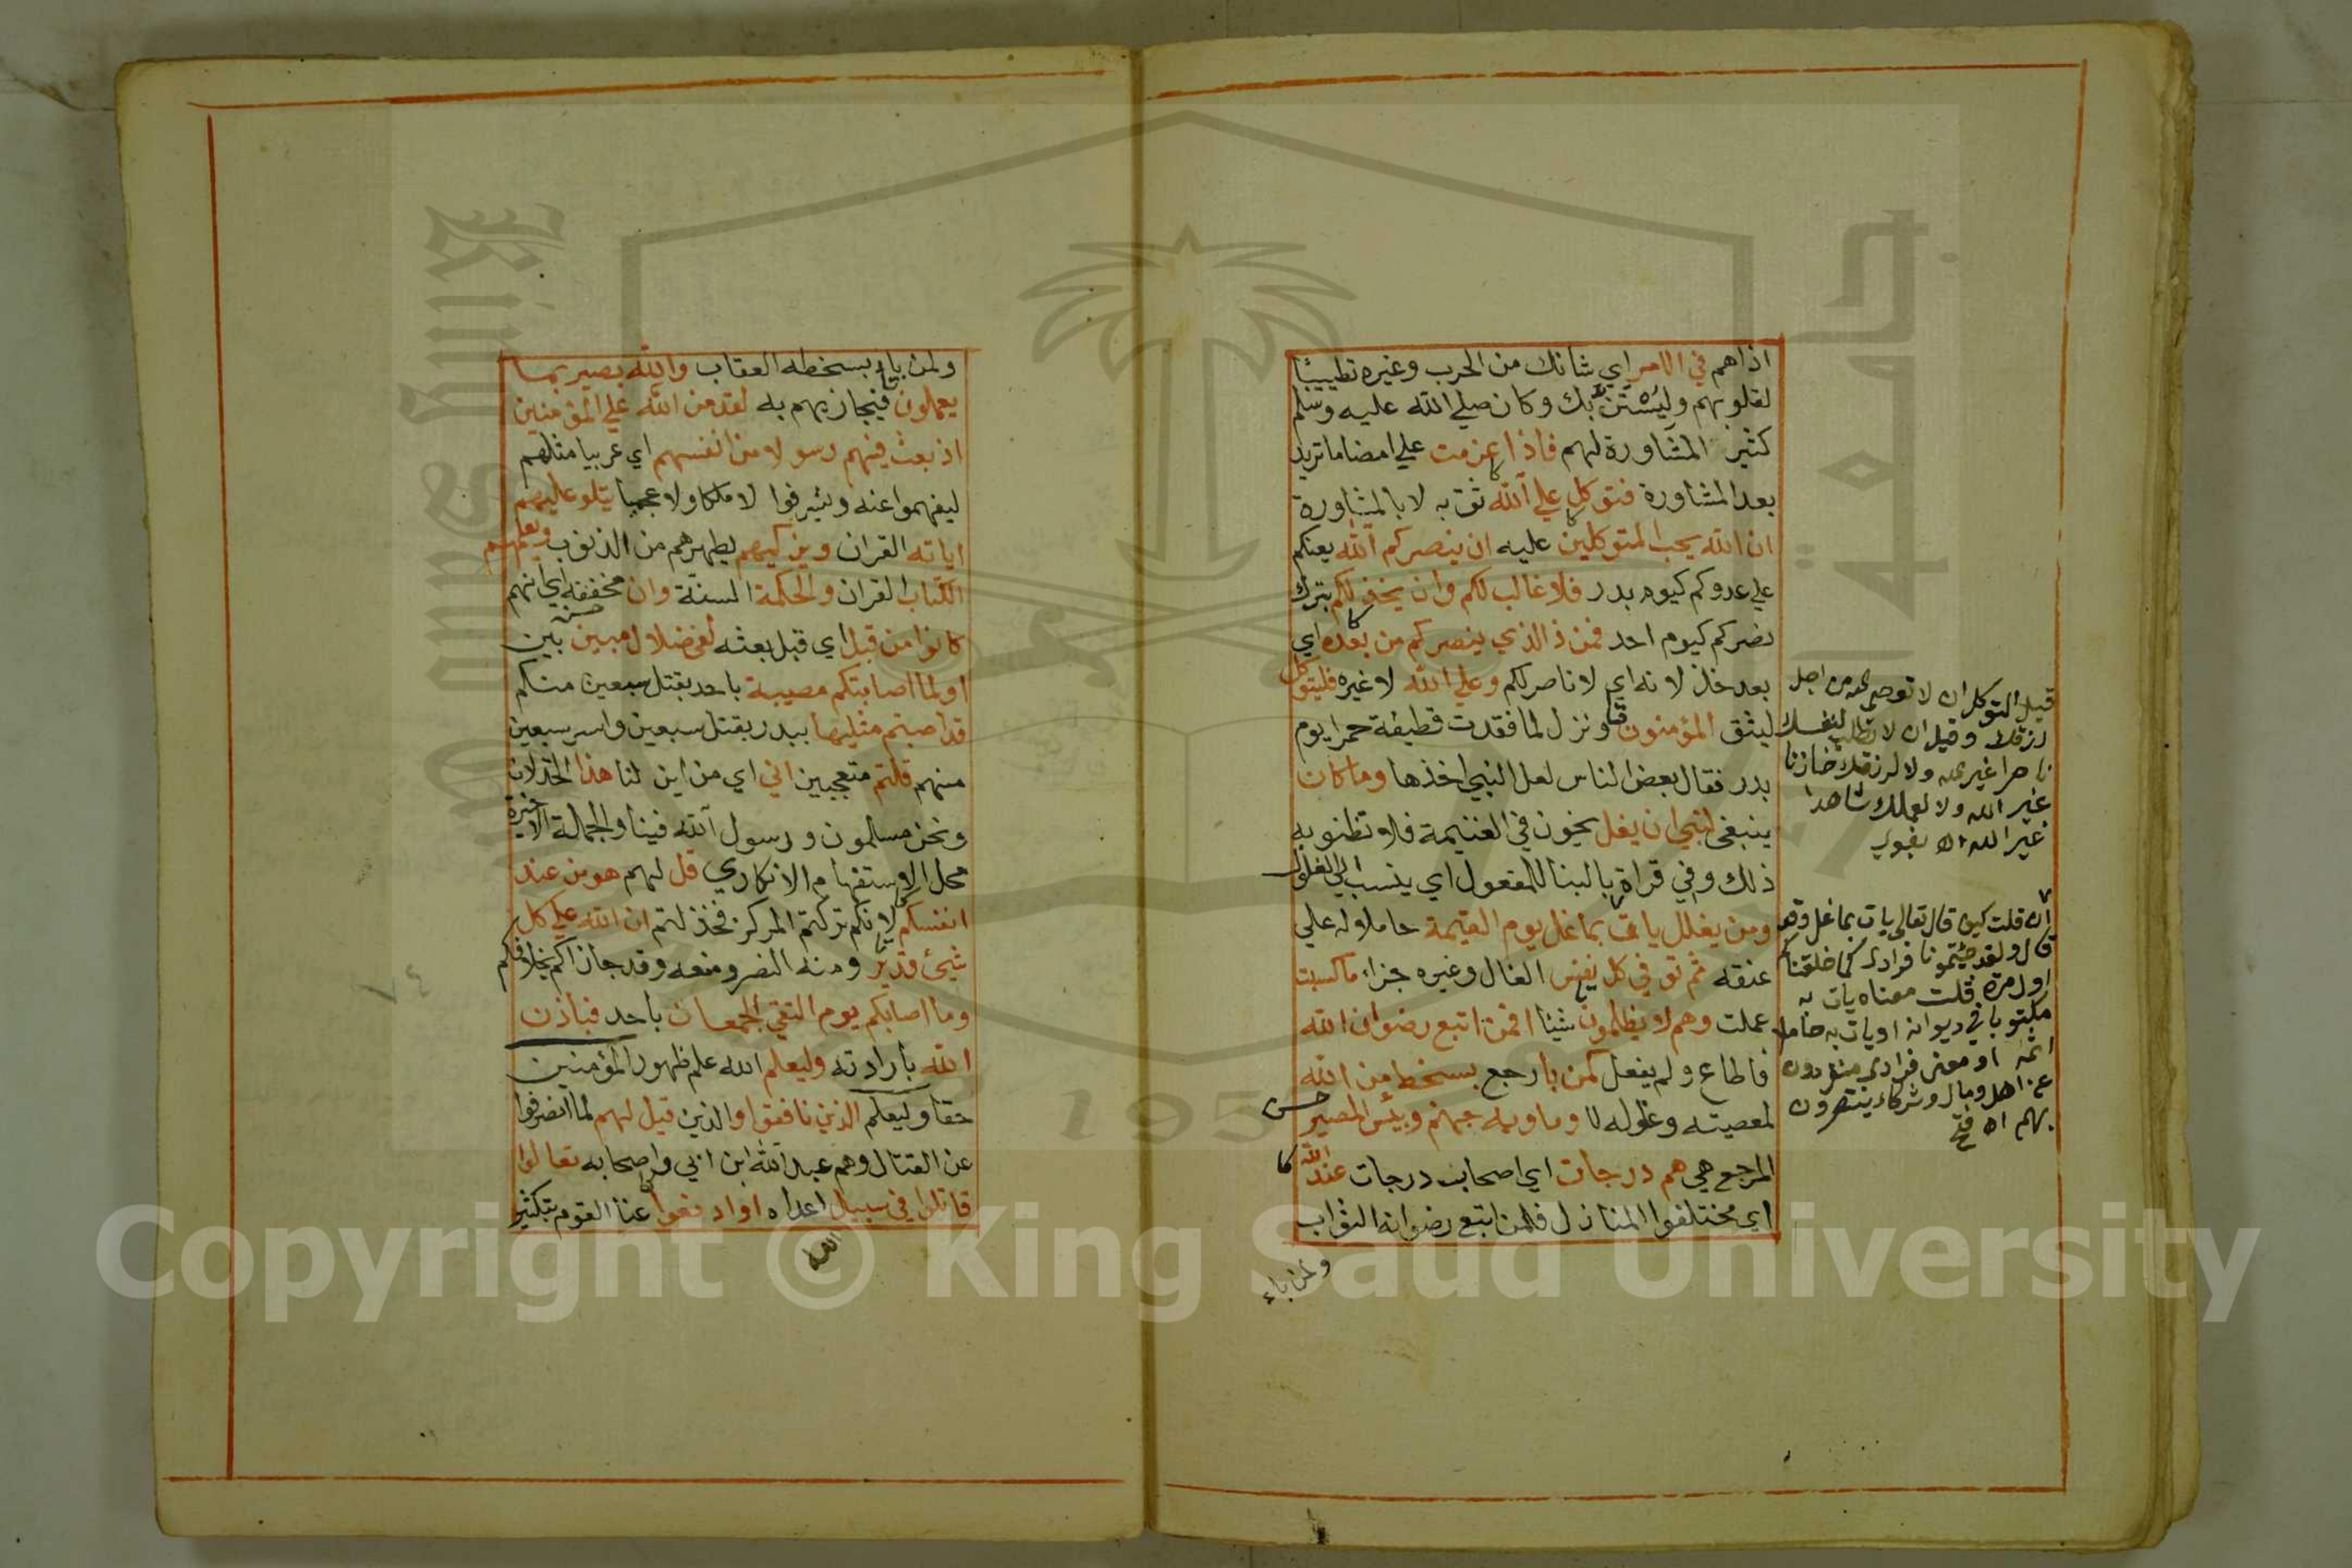 اذاهم في الامر اي شانك من الحرب وغيره تطييبا
لقلوبهم وليستن بك وكان صلي الله عليه وسلم
كثير المشاورة لهم فاذا عزمت علي امضا ما تريد
بعد المشاورة فتوكل علي الله ثق به لا بالمشاورة
ان الله يحب المتوكلين عليه ان ينصركم الله يعنكم
علي عدوكم كيوم بدر فلا غالب لكم وان يخذلكم بترك
نصركم كيوم احد فمن ذا الذي ينصركم من بعده اي
بعد خذلانه اي لا ناصر لكم وعلي الله لا غيره فليتوكل
ليثق المؤمنون ونزل لما فقدت قطيفة حمرا يوم
بدر فقال بعض الناس لعل النبي اخذها وما كان
ينبغي لنبي ان يغل يخون في الغنيمة فلا تظنو به
ذلك وفي قراة بالبنا للمفعول اي ينسب الي الغلول
ومن يغلل يات بما غل يوم القيمة حاملا له علي
عنقه ثم توفي كل نفس الغال وغيره جزاء ما كسبت
عملت وهم لا يظلمون شيئا افمن اتبع رضوان الله
فاطاع ولم يغل كمن باء رجع بسخط من الله
لمعصيته وغلوله لا وماويه جهنم وبئس المصير
المرجع هي هم درجات اي اصحاب درجات عند الله
اي مختلفوا المنازل فلمن اتبع رضوانه الثواب
ولمن باء
قيل التوكل ان لا تعصي الله من اجل
رزقك وقيل ان لا تطلب لنفسك
ناصرا غير الله ولا لرزقك خازنا
غير الله ولا لعملك شاهدا
غير الله اه بغوي
ان قلت كيف قال تعالي يات بما غل وقد
قال ولقد جئتمونا فرادي كما خلقناكم
اول مرة قلت معناه يات به
مكتوبا في ديوانه او يات به حاملا
اثمه او معني فرادي منفردون
عن اهل ومال وشركاء ينتصرون
بهم اه فتح
ولمن باء بسخطه العقاب والله بصير بما
يعملون فيجازيهم به لقد من الله علي المؤمنين
اذ بعث فيهم رسولا من انفسهم اي عربيا مثلهم
ليفهموا عنه ويشرفوا لا ملكا ولا عجميا يتلو عليهم
اياته القران ويزكيهم يطهرهم من الذنوب ويعلمهم
الكتاب القران والحكمة السنة وان مخففه اي انهم
كانوا من قبل اي قبل بعثه لفي ضلال مبين بين
اولما اصابتكم مصيبة باحد بقتل سبعين منكم
قد اصبتم مثليها ببدر بقتل سبعين واسر سبعين
منهم قلتم متعجبين اني اي من اين لنا هذا الخذلان
ونحن مسلمون ورسول الله فينا والجملة الاخيرة
محل الاستفهام الانكاري قل لهم هو من عند
انفسكم لانكم تركتم المركز فخذلتم ان الله علي كل
شيئ قدير ومنه النصر ومنعه وقد جازاكم بخلافكم
وما اصابكم يوم التقي الجمعان باحد فباذن
الله بارادته وليعلم الله علم ظهور المؤمنين
حقا وليعلم الذين نافقوا والذين قيل لهم لما انصرفوا
عن القتال وهم عبد الله ابن ابي واصحابه تعالوا
قاتلوا في سبيل اعداه او ادفعوا عنا القوم بتكثير
Copyright © King Saud University
جامعة
King Saud
195